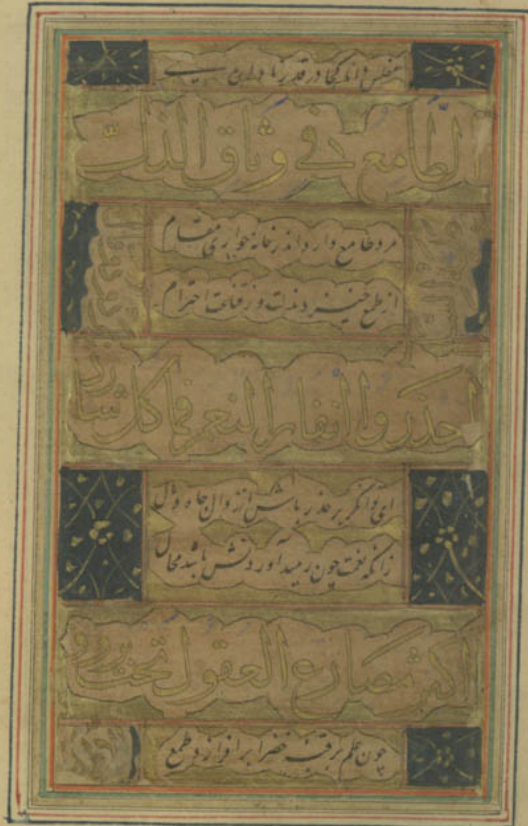 مفلس دانا کجا در قدر
الطامع فی وثاق الذل
مرد طامع دارد اندر خانه خواری مقام
از طمع خیزد مذلت وز قناعت احترام
احذروا نفار النعم فما کل شارد
ای توانگر بر حذر باش از زوال جاه و مال
زانکه نعمت چون رمید آوردنش باشد محال
اکثر مصارع العقول تحت برو
چون علم بر قبه خضرا برافرازد طمع